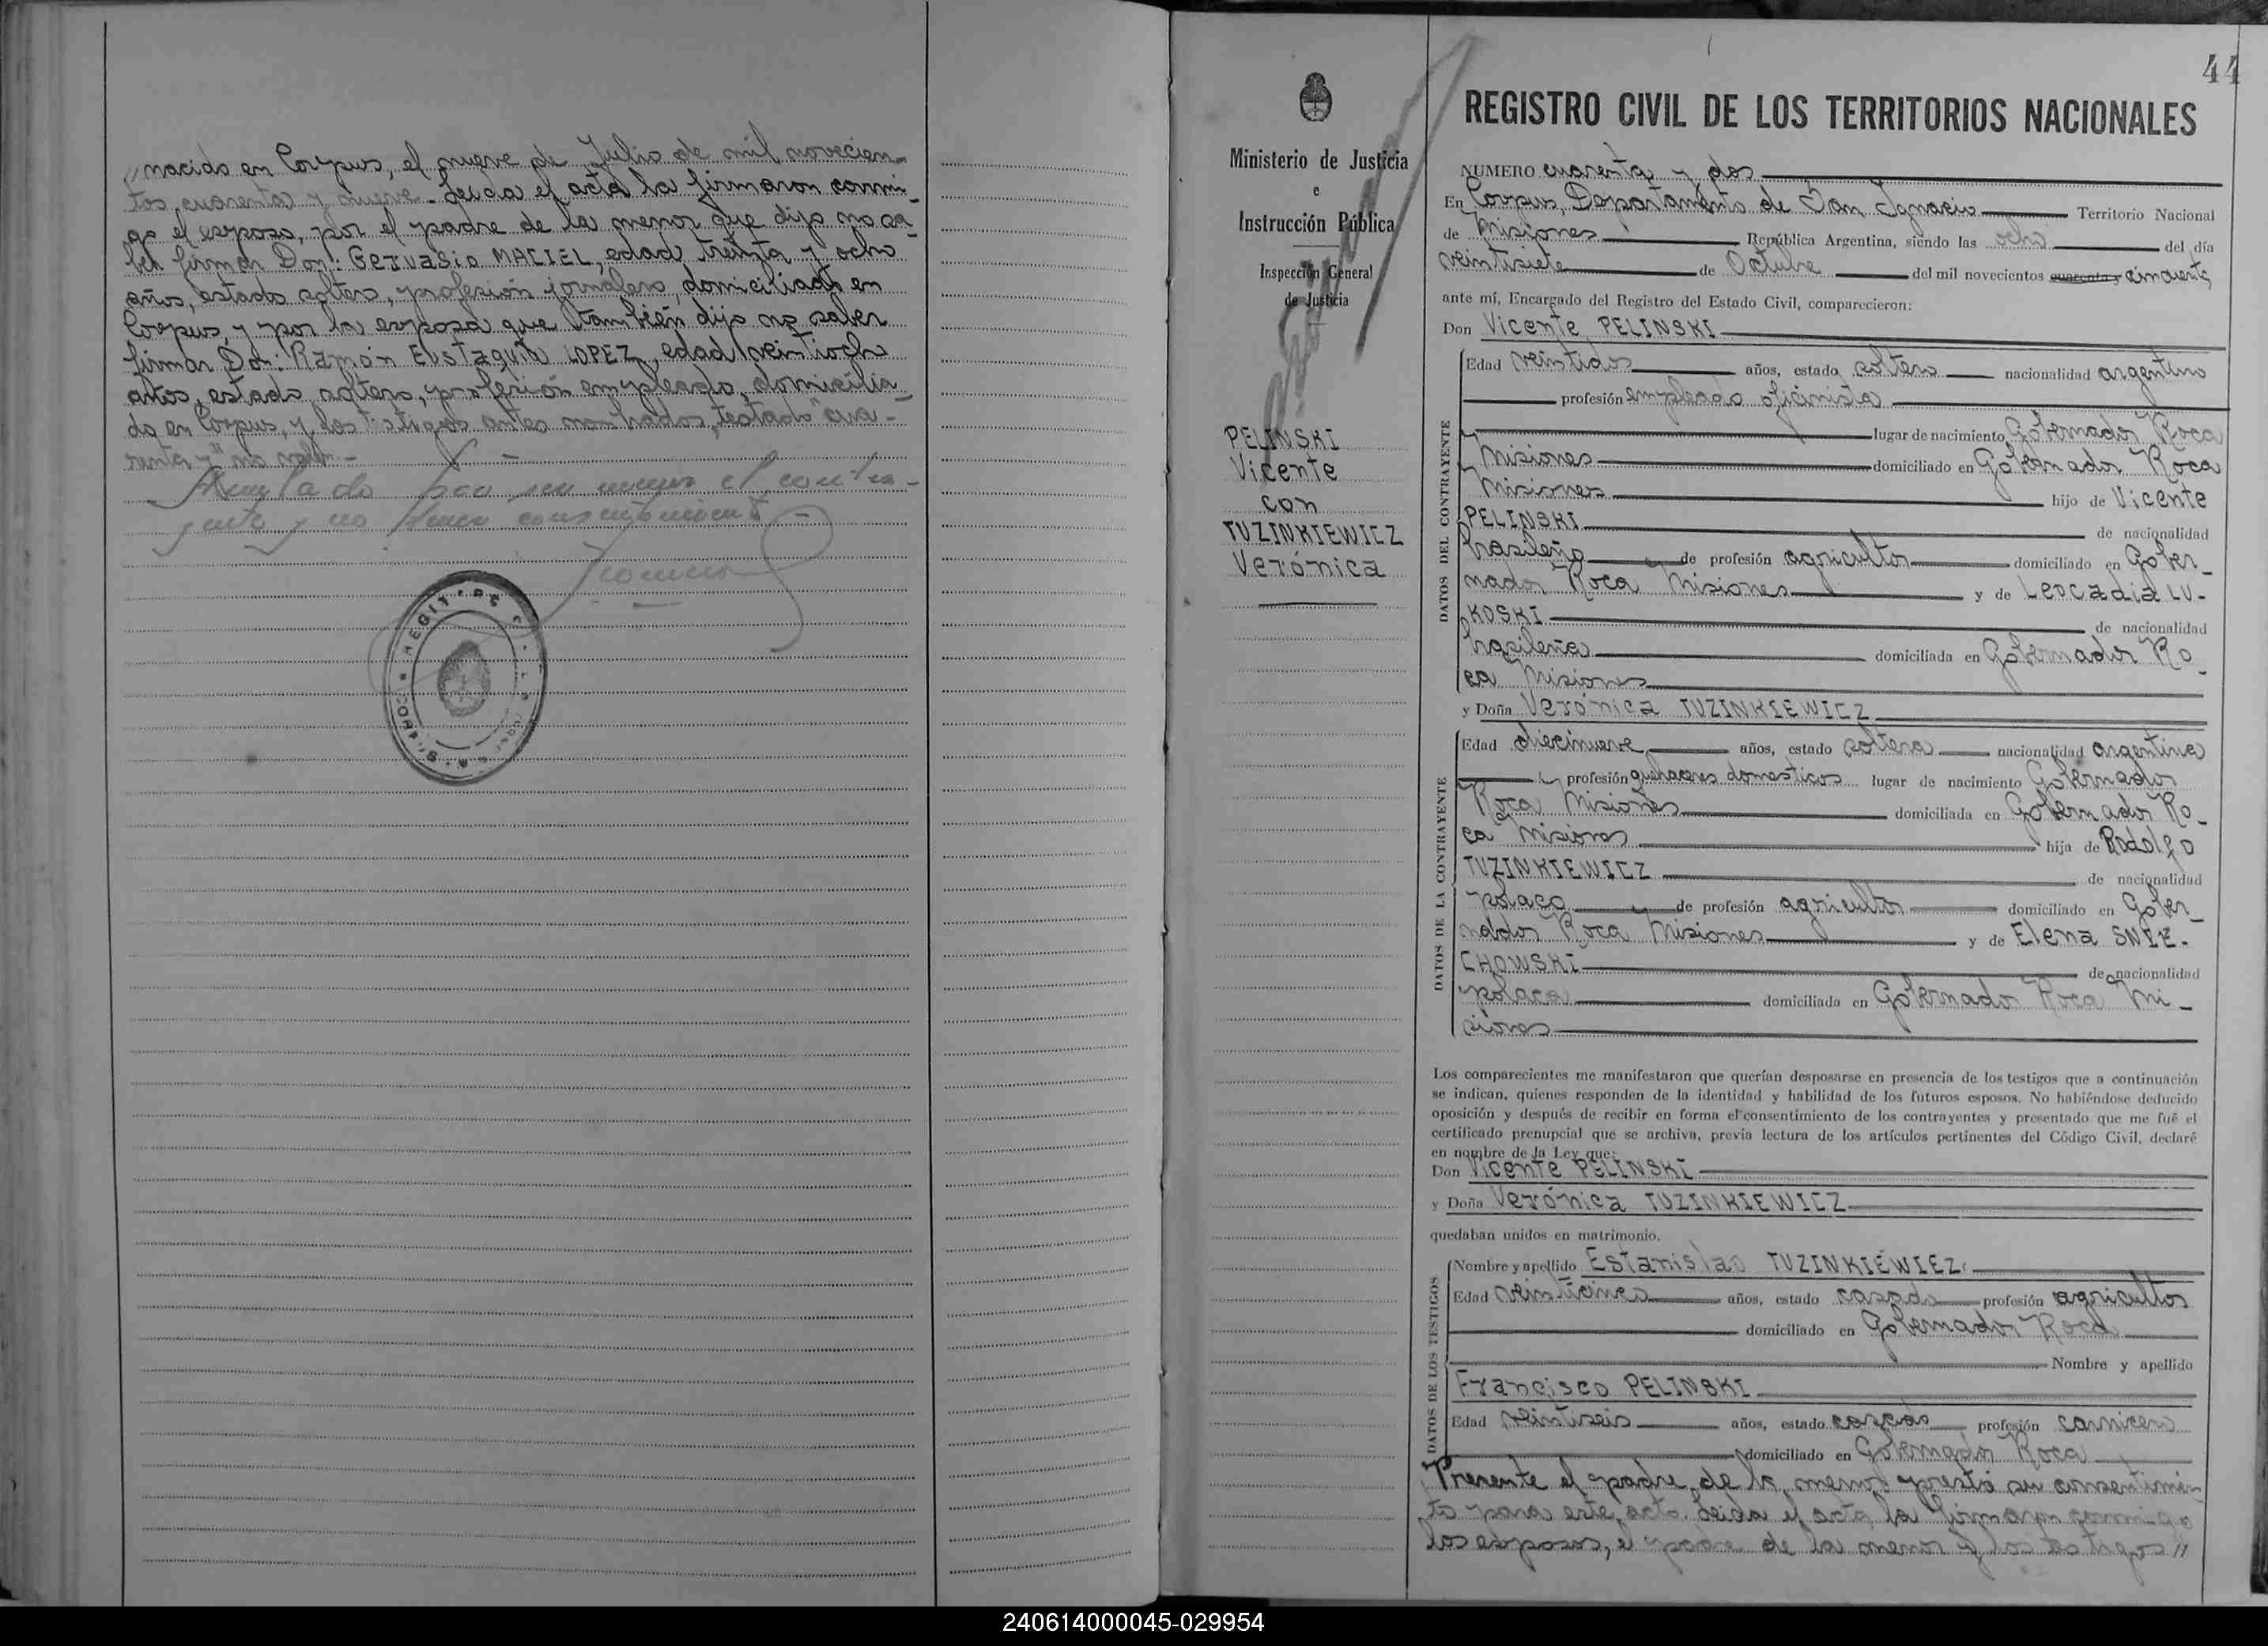 „nacido en Corpus, el nueve de Julio de mil novecien-
tos cuarenta y nueve. Leida el acta la firmaron conmi-
go el esposo, por el padre de la menor que dijo no sa-
ber firmar Don: Gervasio MACIEL, edad treinta y ocho
años, estado soltero, profesión jornalero, domiciliado en
Corpus, y por la esposa que tambien dijo no saber
firmar Don: Ramón EUSTAQUIO LOPEZ, edad veintiocho
años, estado soltero, profesión empleado, domicilia-
do en Corpus, y los testigos antes nombrados, testado "cua-
renta y" no vale.-
Anulado por ser menor el contra-
yente y no tener consentimiento -
REGIT
44
REGISTRO CIVIL DE LOS TERRITORIOS NACIONALES
Ministerio de Justicia
e
Instrucción Pública
Inspección General
de Justicia
PELINSKI
Vicente
con
TUZINKIEWICZ
Verónica
NUMERO cuarenta y dos
En Corpus, Departamento de San Ignacio Territorio Nacional
de Misiones República Argentina, siendo las ocho del día
veintisiete de Octubre del mil novecientos cuarenta y cincuenta
ante mí, Encargado del Registro del Estado Civil, comparecieron:
Don Vicente PELINSKI
DATOS DEL CONTRAYENTE
Edad veintidos años, estado soltero nacionalidad argentino
profesión empleado oficinista
lugar de nacimiento Gobernador Roca
Misiones domiciliado en Gobernador Roca
Misiones hijo de Vicente
PELINSKI de nacionalidad
brasileño de profesión agricultor domiciliado en Gober-
nador Roca Misiones y de Leocadia LU-
KOSKI de nacionalidad
brasileña domiciliada en Gobernador Ro-
ca Misiones
y Doña Verónica TUZINKIEWICZ
DATOS DE LA CONTRAYENTE
Edad diecinueve años, estado soltera nacionalidad argentina
profesión quehaceres domesticos lugar de nacimiento Gobernador
Roca Misiones domiciliada en Gobernador Ro-
ca Misiones hija de Rodolfo
TUZINKIEWICZ de nacionalidad
polaco de profesión agricultor domiciliado en Gober-
nador Roca Misiones y de Elena SNIE-
CHOWSKI de nacionalidad
polaca domiciliada en Gobernador Roca Mi-
siones
Los comparecientes me manifestaron que querían desposarse en presencia de los testigos que a continuación
se indican, quienes responden de la identidad y habilidad de los futuros esposos. No habiéndose deducido
oposición y después de recibir en forma el consentimiento de los contrayentes y presentado que me fué el
certificado prenupcial que se archiva, previa lectura de los artículos pertinentes del Código Civil, declaré
en nombre de la Ley que:
Don Vicente PELINSKI
y Doña Verónica TUZINKIEWICZ
quedaban unidos en matrimonio.
DATOS DE LOS TESTIGOS
Nombre y apellido Estanislao TUZINKIEWIEZ
Edad veinticinco años, estado casado profesión agricultor
domiciliado en Gobernador Roca
Nombre y apellido
Francisco PELINSKI
Edad veintiseis años, estado casado profesión carnicero
domiciliado en Gobernador Roca
Presente el padre de la menor prestó su consentimien-
to para este acto. Leida el acta la firmaron conmigo
los esposos, el padre de la menor y los testigos „
240614000045-029954